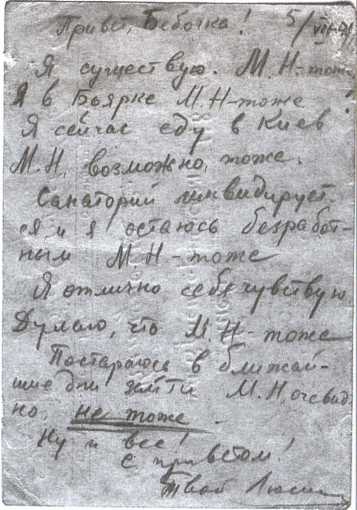 Привет, Бебочка! 5/VIII-41
Я существую. М.Н-тоже
Я в Боярке М.Н-тоже!
Я сейчас еду в Киев
М.Н. возможно, тоже.
Санаторий ликвидирует-
ся и я остаюсь безработ-
ным М.Н-тоже
Я отлично себя чувствую
Думаю, что М.Н-тоже
Постараюсь в ближай-
шие дни зайти М.Н, очевид-
но, не тоже.
Ну и все!
С приветом!
Твой Люсик